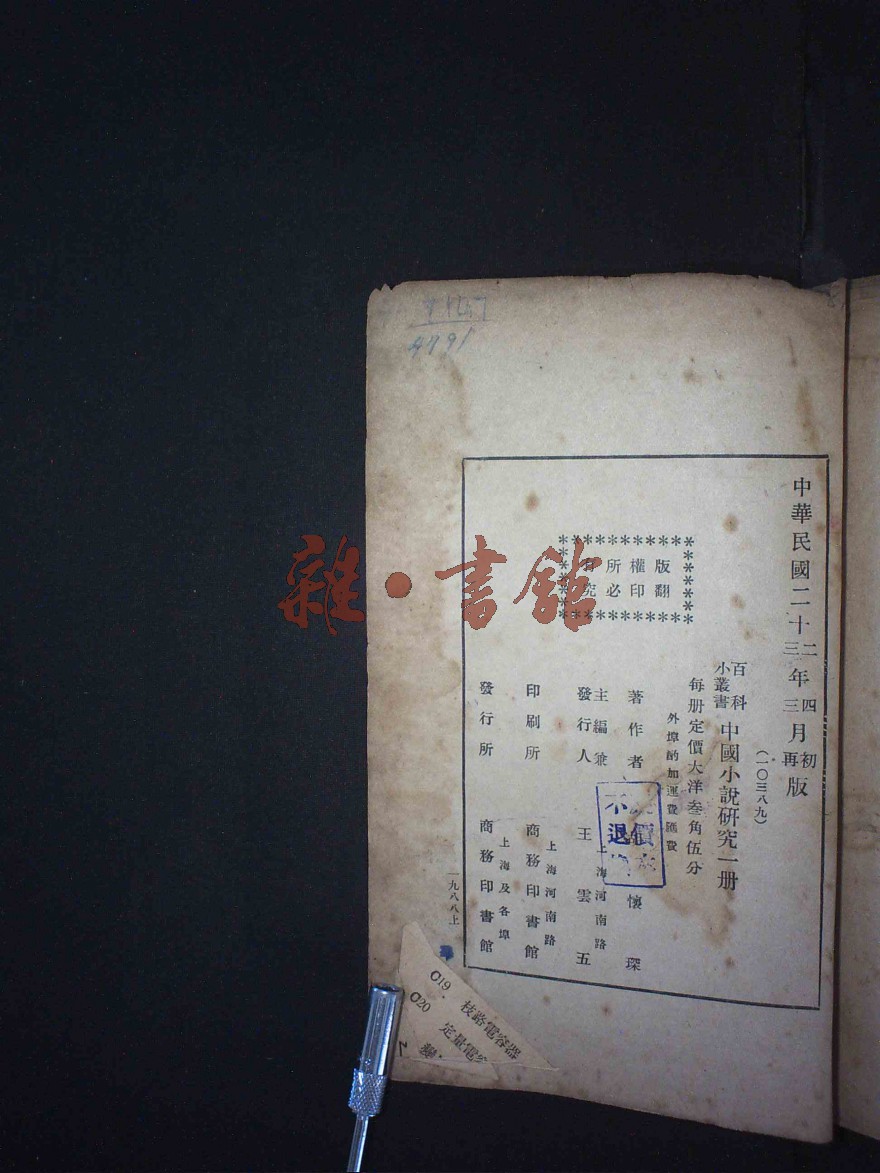 中華民國二十二年四月初版
三 三 再
(一〇三八九)
百科
小叢書
中國小說研究一册
每册定價大洋叁角伍分
外埠酌加運費匯費
版權所有
翻印必究
著作者 懷琛
主編兼
發行人 王雲五
上海河南路
印刷所 商務印書館
上海河南路
發行所 商務印書館
上海及各埠
一九八八上
價
不退
雜·書館
4791
C19. 枝路電容器
C20 定量電容